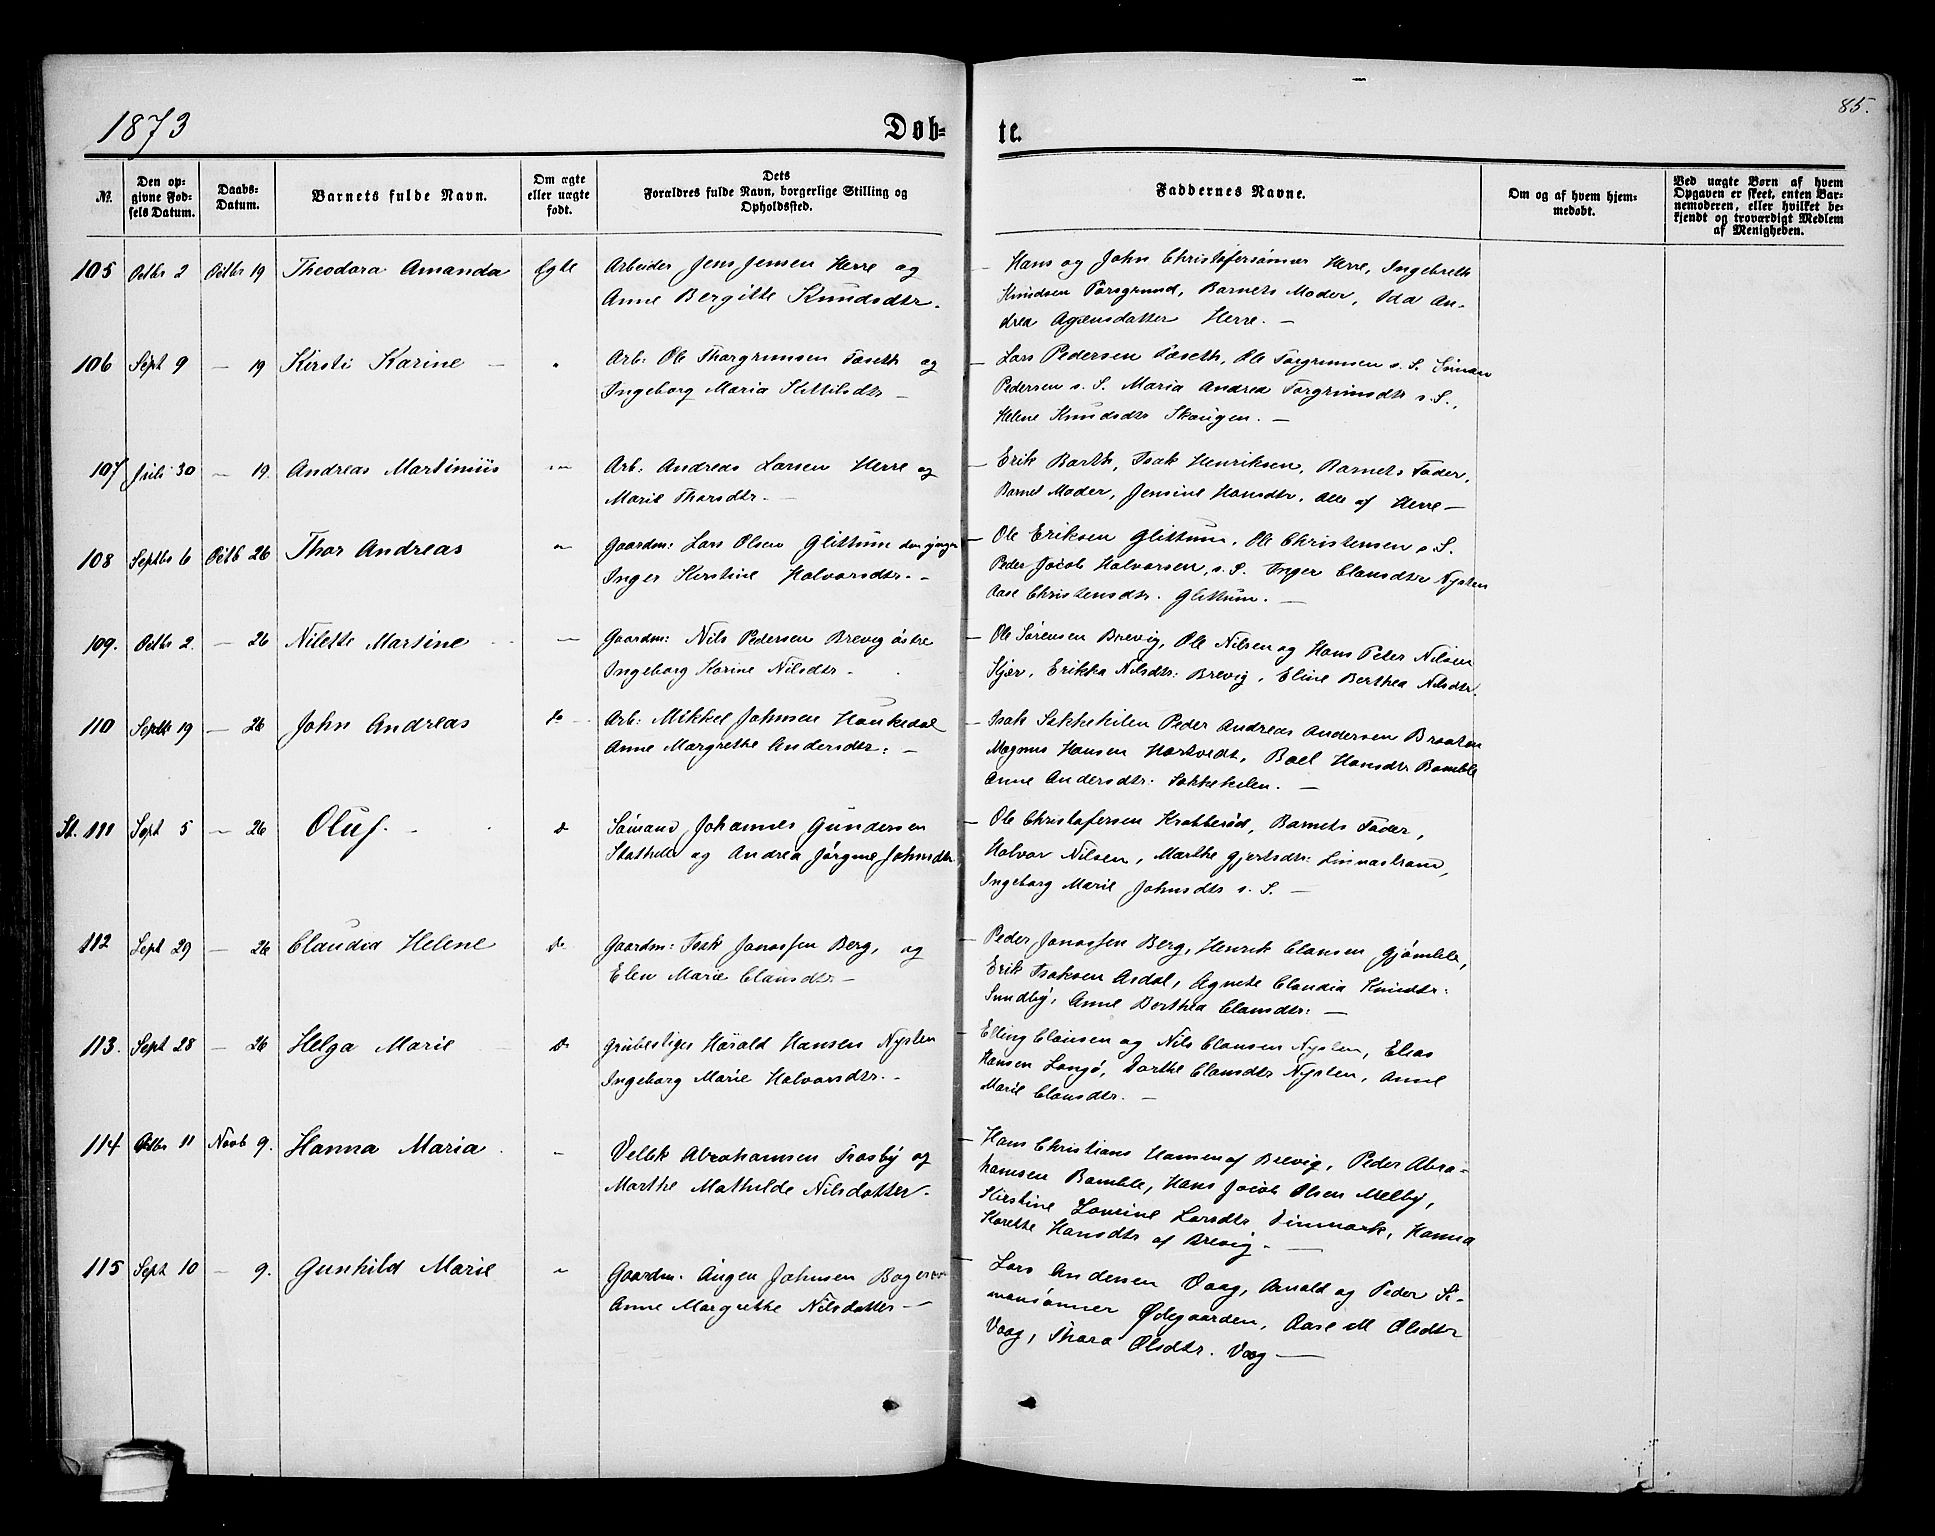 1873
Døb-
te.
85.
No.
Den op-
givne Fød-
sels Datum.
Daabs-
Datum.
Barnets fulde Navn.
Om ægte
eller uægte
født.
Dets
Forældres fulde Navn, borgerlige Stilling og
Opholdssted.
Faddernes Navne.
Om og af hvem hjem-
medøbt.
Ved uægte Børn af hvem
Opgaven er skeet, enten Bar-
nemoderen, eller hvilket be-
kjendt og troværdigt Medlem
af Menigheden.
105 Octbr 2 Octbr 19 Theodora Amanda Egte Arbeider Jens Jensen Herre og
Anne Bergitte Knudsdtr.
Hans og John Christofersønner Herre, Ingebreth
Knudsen Porsgrund, Barnets Moder, Ida An-
drea Agensdatter Herre. —
106 Sept 9 — 19 Kirsti Karine — " Arb: Ole Thorgrimsen Toseth og
Ingeborg Maria Kittilsdtr —
Lars Pedersen Toseth, Ole Torgrimsen s. S. Simon
Pedersen s. S. Maria Andrea Torgrimsdtr s. S.,
Helene Knudsdtr Skougen. —
107 Juli 30 — 19. Andreas Martinius — Arb. Andreas Larsen Herre og
Marie Thorsdtr. —
Erik Barth, Isak Henriksen, Barnets Fader,
Barnet Moder, Jensine Hansdtr, Alle af Herre —
108 Septbr 6 Octb 26 Thor Andreas — Gaardm: Lars Olsen Glittum den yngre
Inger Kirstine Halvorsdtr. —
Ole Eriksen Glittum, Ole Christensen s. S.
Peder Jacob Halvorsen, s. S. Inger Clausdtr Nysten
Aase Christensdtr. Glittum. —
109. Octbr 2. — 26 Nilette Martine — Gaardm: Nils Pedersen Brevig østre
Ingeborg Karine Nilsdtr.
Ole Sørensen Brevig, Ole Nilsen og Hans Peter Nilsen
Kjær, Erikka Nilsdtr: Brevig, Eline Berthea Nilsdtr.
110 Septbr 19 — 26 John Andreas do Arb: Mikkel Johnsen Haukedal
Anne Margrethe Andersdtr: —
Isak Sokkekilen Peder Andreas Andersen Braaten
Magnus Hansen Hartvedt, Boel Hansdtr Bamble
Anne Andersdtr: Sokkekilen. —
St. 111 Sept 5 — 26 Oluf. do Sømand Johannes Gundersen
Stathelle og Andrea Jørgine Johnsdtr.
Ole Christofersen Krabberød, Barnets Fader,
Halvor Nilsen, Marthe Gjertsdtr: Linnastrand,
Ingeborg Marie Johnsdtr s. S. —
112 Sept 29 — 26 Claudia Helene do Gaardm: Isak Jonassen Berg, og
Elen Marie Clausdtr —
Peder Jonassen Berg, Henrik Clausen Gjømle,
Erik Isaksen Asdal, Agnete Claudia Knudtr:
Sundby, Anne Berthea Clausdtr: —
113. Sept 28 — 26 Helga Marie do Grubestiger Harald Hansen Nysten
Ingeborg Marie Halvorsdtr. —
Elling Clausen og Nils Clausen Nysten, Elias
Hansen Langø, Dorthe Clausdtr Nysten, Anne
Marie Clausdtr. —
114 Octbr 11 Novb 9. Hanna Maria — Abrahamsen Trosby og
Marthe Mathilde Nilsdatter.
Hans Christians Hansen af Brevig, Peder Abra-
hamsen Bamble, Hans Jacob Olsen Melby,
Kirstine Lovine Larsdtr Finmark, Hanna
Karethe Hansdtr af Brevig. —
115 Sept 10 — 9. Gunhild Marie — Gaardm. Ougen Johnsen
Anne Margrethe Nilsdatter —
Lars Andersen Vaag, Arnold og Peder Si-
monsønner Ødegaarden, Aase M Olsdtr
Vaag, Thara Olsdtr. Vaag —